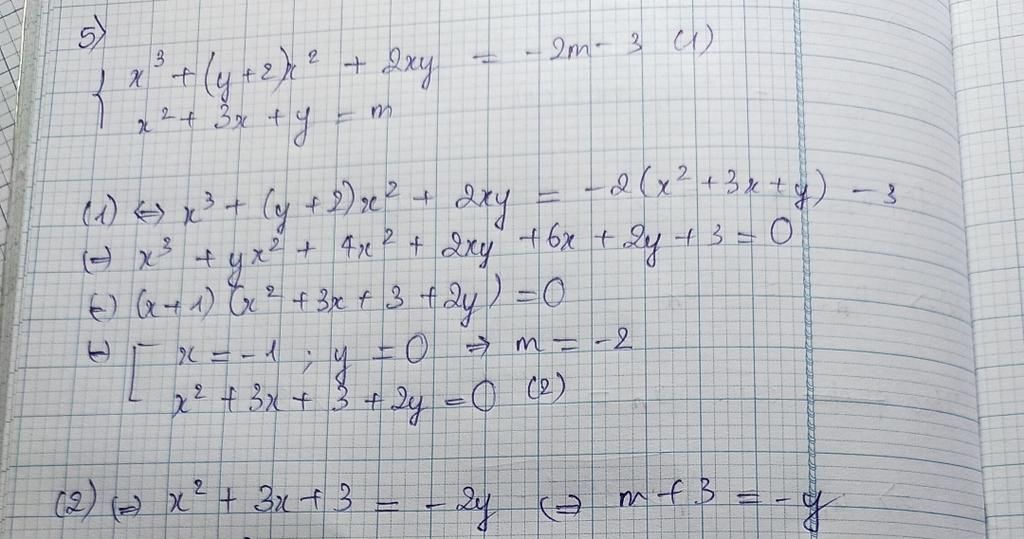 5)
x³ + (y+2)x² + 2xy = -2m - 3 (1)
x² + 3x + y = m
(1) ⇔ x³ + (y+2)x² + 2xy = -2(x² + 3x + y) - 3
⇔ x³ + yx² + 4x² + 2xy + 6x + 2y + 3 = 0
⇔ (x+1)(x² + 3x + 3 + 2y) = 0
⇔ [ x = -1 ; y = 0 ⇒ m = -2
x² + 3x + 3 + 2y = 0 (2)
(2) ⇔ x² + 3x + 3 = -2y ⇔ m + 3 = -y